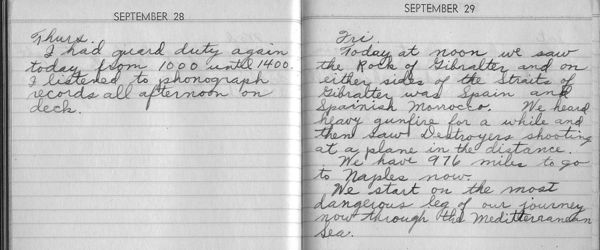 SEPTEMBER 28
Thurs.
I had guard duty again
today from 1000 until 1400.
I listened to phonograph
records all afternoon on
deck.
SEPTEMBER 29
Fri.
Today at noon we saw
the Rock of Gibralter and on
either sides of the straits of
Gibralter was Spain and
Spainish Morrocco. We heard
heavy gunfire for a while and
then saw Destroyers shooting
at a plane in the distance.
We have 976 miles to go
to Naples now.
We start on the most
dangerous leg of our journey
now through the Mediterranean
Sea.